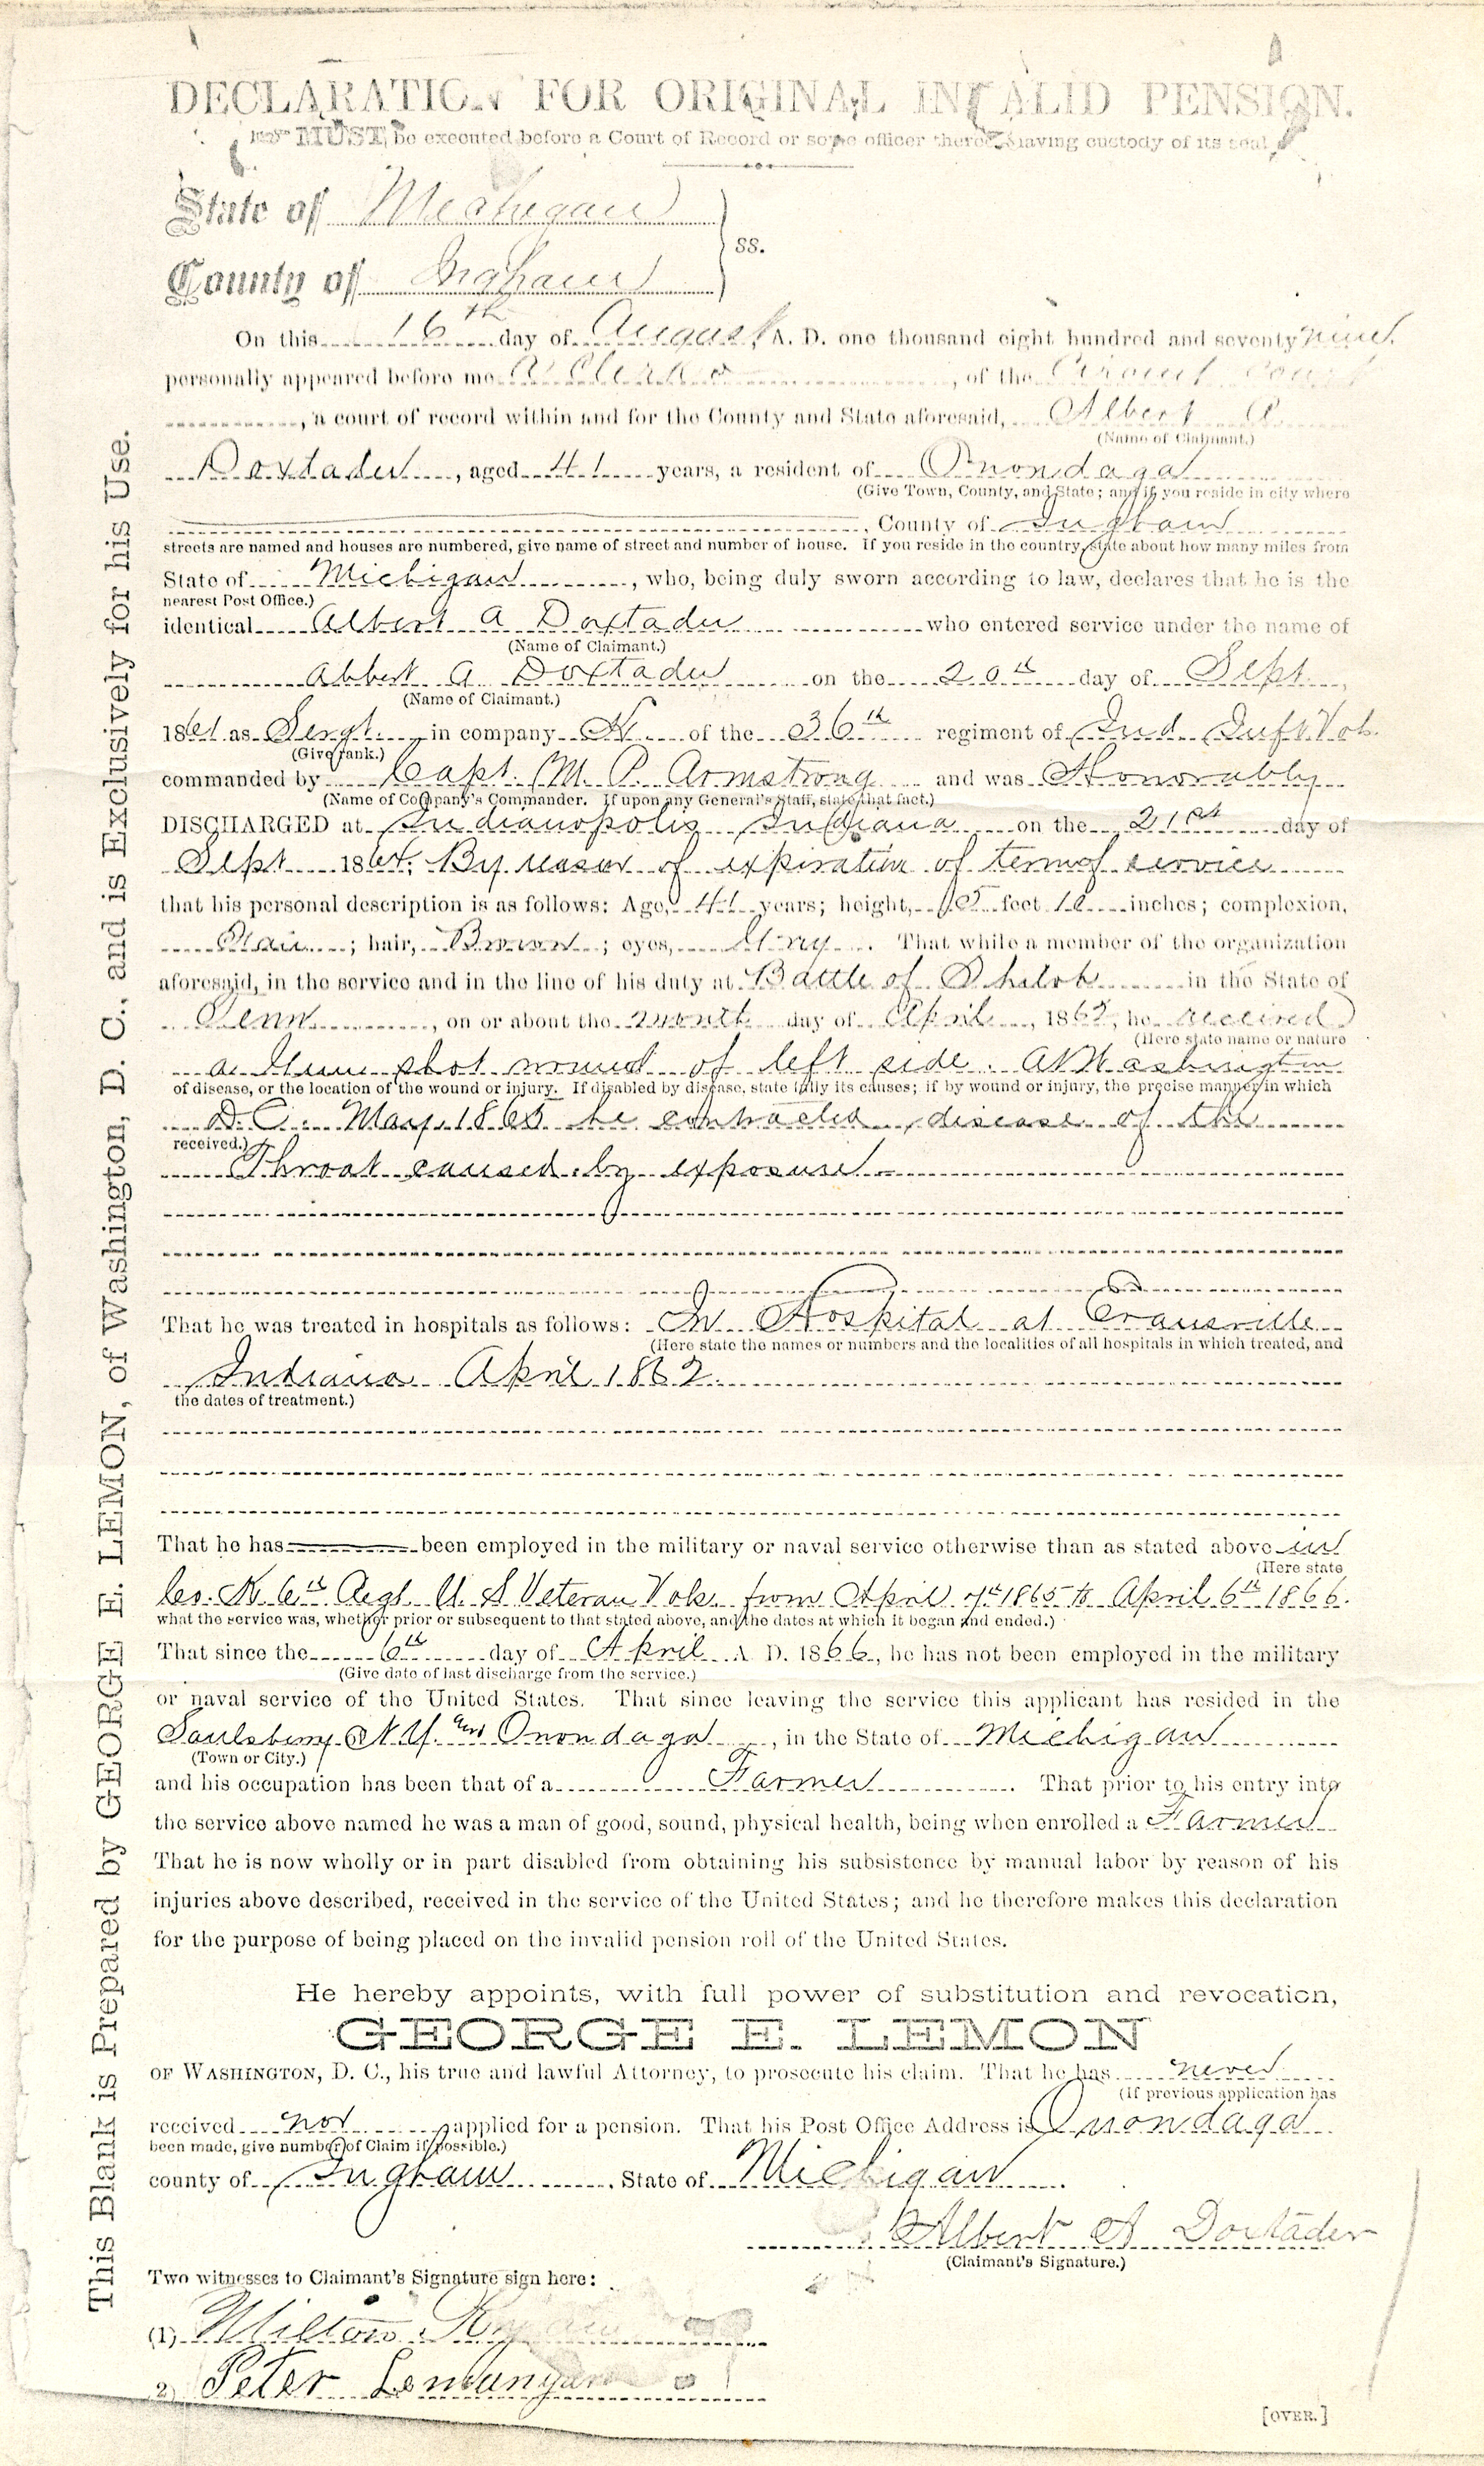 DECLARATION FOR ORIGINAL INVALID PENSION.
MUST be executed before a Court of Record or some officer thereof having custody of its seal.
State of Michigan
ss.
County of Ingham
On this 16th day of August, A. D. one thousand eight hundred and seventy nine,
personally appeared before me a Clerk, of the Circuit Court
, a court of record within and for the County and State aforesaid, Albert A.
(Name of Claimant.)
Doxtader, aged 41 years, a resident of Onondaga
(Give Town, County, and State; and if you reside in city where
, County of Ingham
streets are named and houses are numbered, give name of street and number of house. If you reside in the country, state about how many miles from
State of Michigan, who, being duly sworn according to law, declares that he is the
nearest Post Office.)
identical Albert A Doxtader who entered service under the name of
(Name of Claimant.)
Albert A Doxtader on the 20th day of Sept.,
(Name of Claimant.)
1861 as Sergt. in company K of the 36th regiment of Ind Inft Vols.
(Give rank.)
commanded by Capt. M. P. Armstrong and was Honorably
(Name of Company's Commander. If upon any General's Staff, state that fact.)
DISCHARGED at Indianopolis Indiana on the 21st day of
Sept 1864. By reason of expiration of term of service
that his personal description is as follows: Age, 41 years; height, 5 feet 10 inches; complexion,
; hair, Brown; eyes, Gray. That while a member of the organization
aforesaid, in the service and in the line of his duty at Battle of Shiloh in the State of
Tenn, on or about the month day of April, 1862, he received
(Here state name or nature
a Gun shot wound of left side. At Washington
of disease, or the location of the wound or injury. If disabled by disease, state fully its causes; if by wound or injury, the precise manner in which
D.C. May, 1865 he contracted disease of the
received.)
Throat caused by exposure
That he was treated in hospitals as follows: In Hospital at Evansville
(Here state the names or numbers and the localities of all hospitals in which treated, and
Indiana April 1862.
the dates of treatment.)
That he has been employed in the military or naval service otherwise than as stated above in
(Here state
Co. K 6th Regt. U. S Veteran Vols. from April 7th 1865 to April 6th 1866.
what the service was, whether prior or subsequent to that stated above, and the dates at which it began and ended.)
That since the 6th day of April A. D. 1866, he has not been employed in the military
(Give date of last discharge from the service.)
or naval service of the United States. That since leaving the service this applicant has resided in the
Saulsbury N.Y. and Onondaga, in the State of Michigan
(Town or City.)
and his occupation has been that of a Farmer. That prior to his entry into
the service above named he was a man of good, sound, physical health, being when enrolled a Farmer
That he is now wholly or in part disabled from obtaining his subsistence by manual labor by reason of his
injuries above described, received in the service of the United States; and he therefore makes this declaration
for the purpose of being placed on the invalid pension roll of the United States.
He hereby appoints, with full power of substitution and revocation,
GEORGE E. LEMON
OF WASHINGTON, D. C., his true and lawful Attorney, to prosecute his claim. That he has never
(If previous application has
received nor applied for a pension. That his Post Office Address is Onondaga
been made, give number of Claim if possible.)
county of Ingham, State of Michigan.
Albert A Doxtader
(Claimant's Signature.)
Two witnesses to Claimant's Signature sign here:
(1) Milton
2) Peter
[OVER.]
This Blank is Prepared by GEORGE E. LEMON, of Washington, D. C., and is Exclusively for his Use.